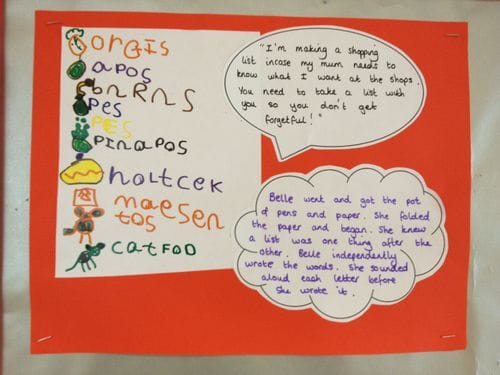 orgis
apos
bnRnS
pes
PES
pinapos
holtcek
maesen
tos
catFOD
"I'm making a shopping
list incase my mum needs to
know what I want at the shops.
You need to take a list with
you so you don't get
forgetful!"
Belle went and got the pot
of pens and paper. She folded
the paper and began. She knew
a list was one thing after the
other. Belle independently
wrote the words. She sounded
aloud each letter before
she wrote it.